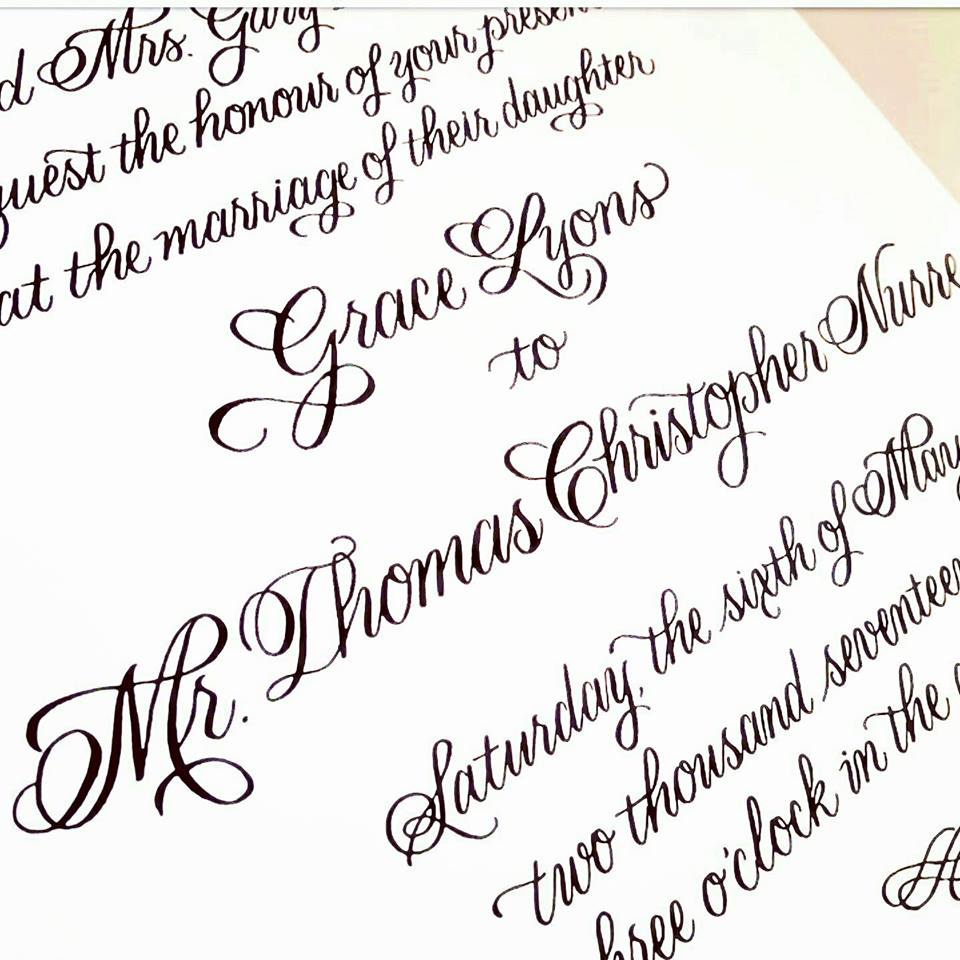 d Mrs. Gary
quest the honour of your presen
at the marriage of their daughter
Grace Lyons
to
Mr. Thomas Christopher Nurre
Saturday, the sixth of May
two thousand seventeen
hree o'clock in the